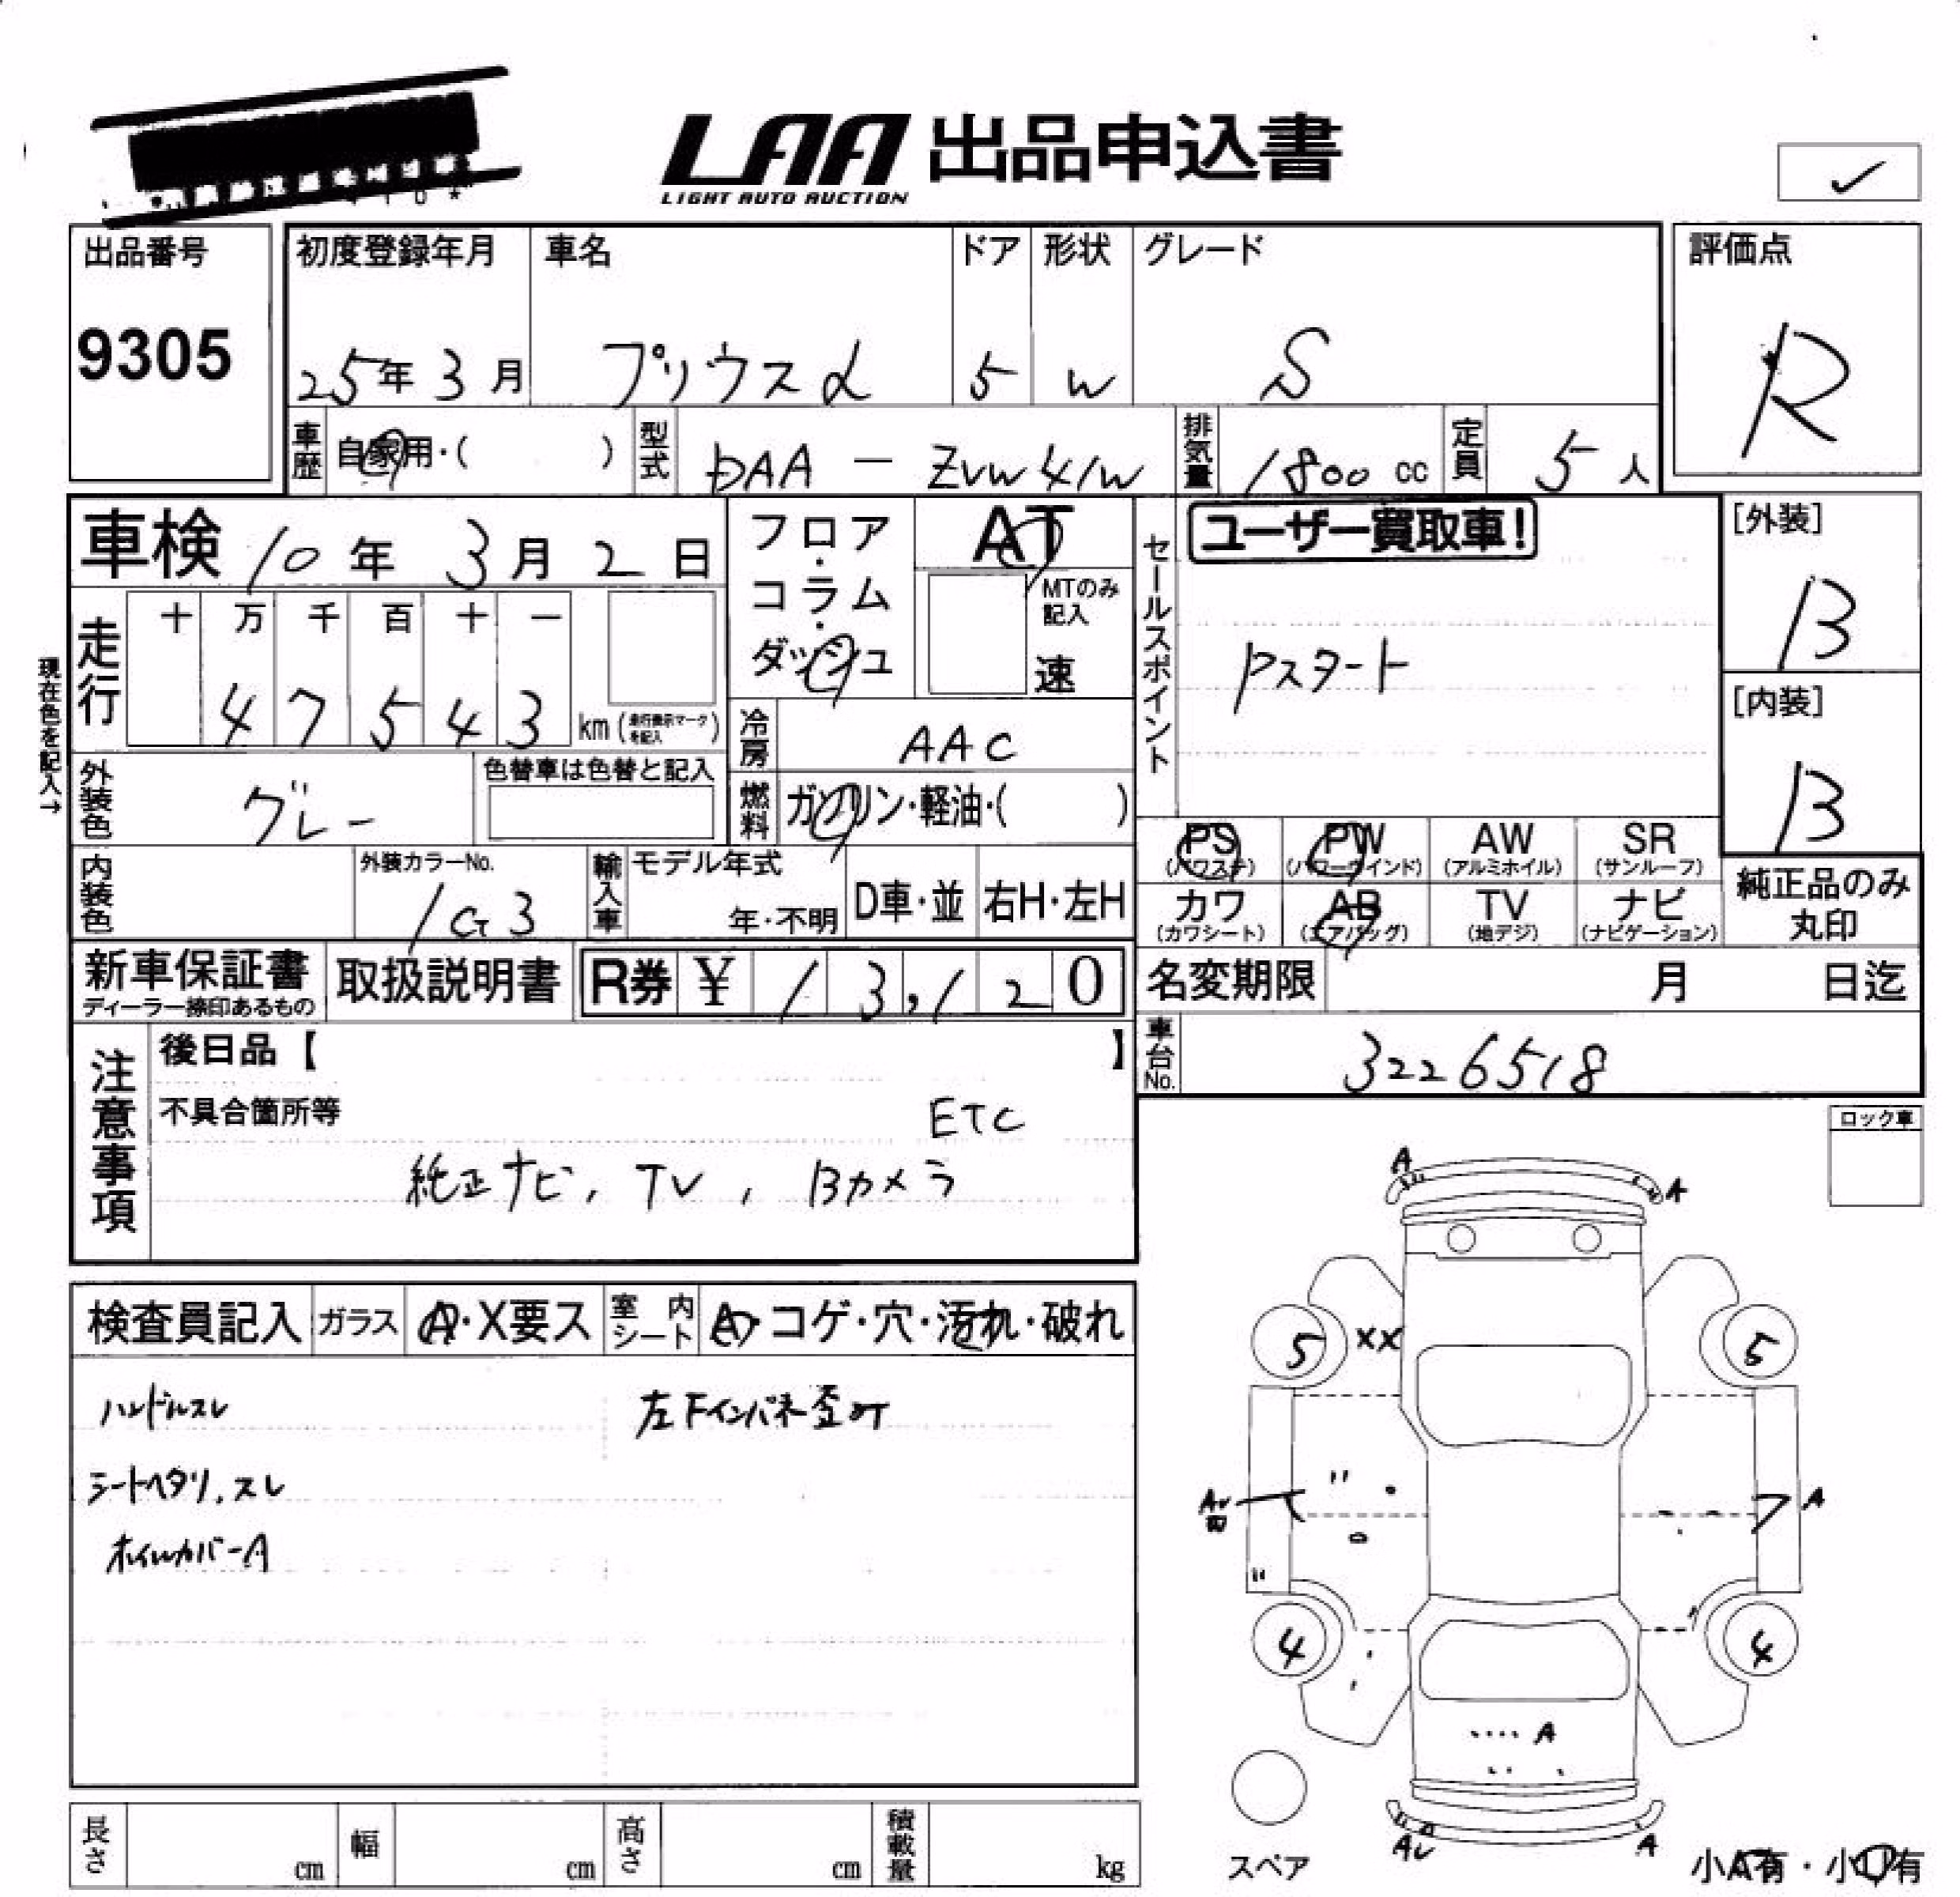 LAA 出品申込書
LIGHT AUTO AUCTION
✓
出品番号
9305
初度登録年月 車名 ドア 形状 グレード
25年 3月 プリウスα 5 W S
評価点
R
車歴 自家用・( ) 型式 DAA - ZVW41W 排気量 1800 cc 定員 5 人
車検 10年 3月 2日
フロア・コラム・ダッシュ
AT
MTのみ記入
速
セールスポイント
ユーザー買取車!
Pスタート
[外装]
B
[内装]
B
現在色を記入→
走行 十 万 千 百 十 一
4 7 5 4 3 km (走行表示マークを記入)
冷房 AAC
外装色 グレー 色替車は色替と記入
燃料 ガソリン・軽油・( )
PS (パワステ) PW (パワーウインド) AW (アルミホイル) SR (サンルーフ)
カワ (カワシート) AB (エアバッグ) TV (地デジ) ナビ (ナビゲーション)
純正品のみ丸印
内装色 外装カラーNo. 1G3 輸入車 モデル年式 年・不明 D車・並 右H・左H
新車保証書 ディーラー捺印あるもの 取扱説明書 R券 ¥ 13,120
名変期限 月 日迄
車台No. 3226518
注意事項
後日品【 】
不具合箇所等
ETC
純正ナビ, TV, Bカメラ
ロック車
検査員記入 ガラス A・X要ス 室内シート A・コゲ・穴・汚れ・破れ
ハンドルスレ 左Fインパネ歪さT
シートヘタリ.スレ
ホイルカバーA
A A
5 XX 5
A
4 4
A
A
スペア
小A有・小U有
長さ cm 幅 cm 高さ cm 積載量 kg